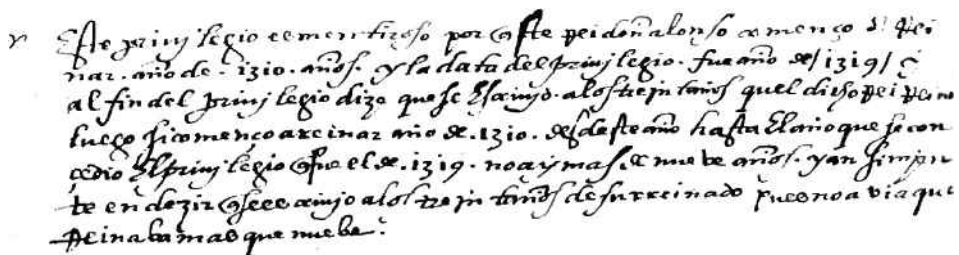 Este privilegio es mentiroso por q este Rei don alonso començo a Rei
nar. año de. 1310. años. y la data del privilegio. fue año de /1319/ i
al fin del privilegio dize que se escrivio. a los treinta años quel dicho Rei Reino
luego si començo a reinar año de. 1310. desde este año hasta el año que se con
cedio el privilegio q fue el de. 1319. no ay mas. de nueve años. y an si mien
te en dezir q se escrivio a los treinta años de su reinado pues no avia que
Reinaba mas que nuebe.